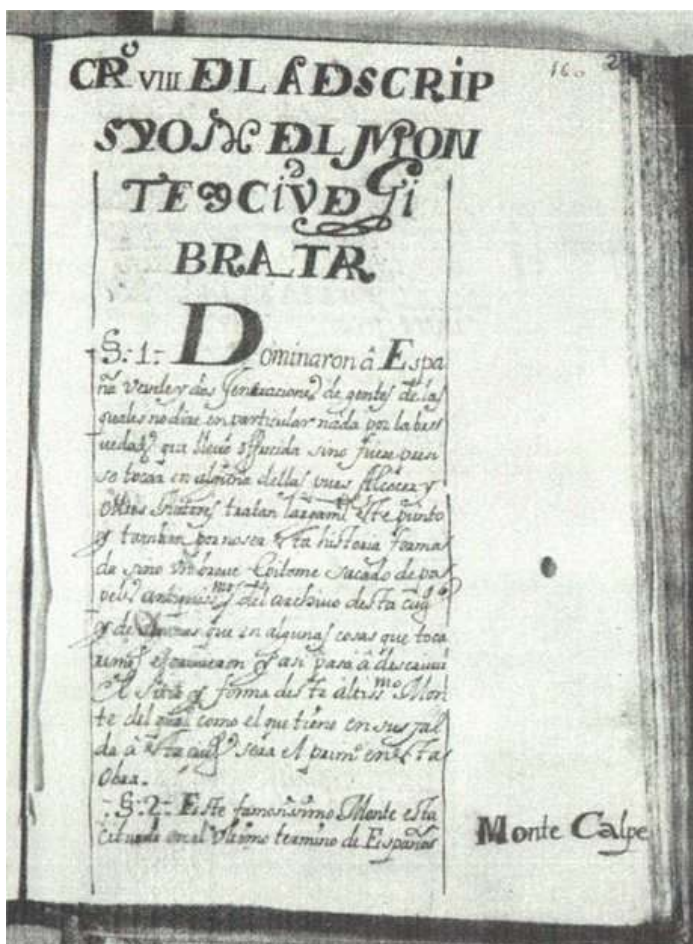 160 2
CRº VIII DE LA DESCRIP
SYON DEL MON
TE Y CIUD DE GI
BRALTAR
§. 1. Dominaron â Espa
ña veinte y dos Jeneraciones de gentes de las
quales no dire en particular nada por la bre
vedad que llevo ofrecida sino fuere preci
so tocar en alguna dellas pues Alcocer y
otros Autores tratan largamte este punto
y tambien por no ser esta historia forma
da sino un breve Epitome sacado de pa
peles antiquisimos del archivo desta ciudd
y de que en algunas cosas que toca
remos escrivieron y asi pasa â descrivir
El sitio y forma deste altissmo Mon
te del qual como el que tiene en su fal
da â esta ciudd sera el primº en esta
Obra.
§. 2. Este famosissimo Monte esta
cituado en el Ultimo termino de España
Monte Calpe